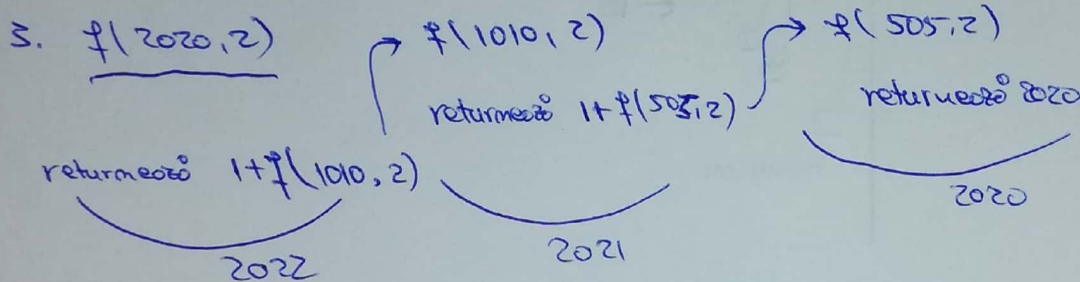 3. f(2020,2)
returnează 1+f(1010,2)
2022
f(1010,2)
returnează 1+f(505,2)
2021
f(505,2)
returnează 2020
2020